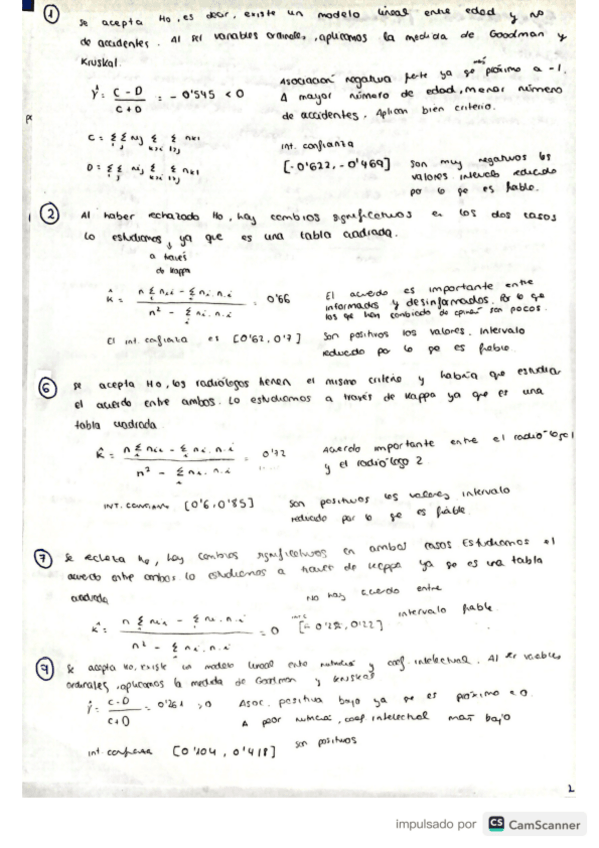 ① Se acepta Ho, es decir, existe un modelo lineal entre edad y no
de accidentes. Al ser variables ordinales, aplicamos la medida de Goodman y
Kruskal.
γ̂ = C - D / C + D = - 0'545 < 0
Asociación negativa fuerte ya que más próximo a -1.
A mayor número de edad, menor número
de accidentes. Aplican bien criterio.
C = Σ Σ nij Σ Σ nkl
i j k>i l>j
D = Σ Σ nij Σ Σ nkl
i j k>i l<j
int. confianza
[-0'622, -0'469]
Son muy negativos los
valores. intervalo reducido
por lo que es fiable.
② Al haber rechazado Ho, hay cambios significativos en los dos casos
lo estudiamos, ya que es una tabla cuadrada.
a través
de Kappa
K̂ = n Σ nii - Σ ni. n.i / n² - Σ ni. n.i = 0'66
El acuerdo es importante entre
informados y desinformados. Por lo que
los que han cambiado de opinar son pocos.
El int. confianza es [0'62, 0'7]
Son positivos los valores. Intervalo
reducido por lo que es fiable.
⑥ Se acepta Ho, los radiólogos tienen el mismo criterio y habría que estudiar
el acuerdo entre ambos. Lo estudiamos a través de Kappa ya que es una
tabla cuadrada.
K̂ = n Σ nii - Σ ni. n.i / n² - Σ ni. n.i = 0'72
Acuerdo importante entre el radiólogo 1
y el radiólogo 2
INT. CONFIANZA [0'6, 0'85]
Son positivos los valores, intervalo
reducido por lo que es fiable.
⑦ Se rechaza Ho, hay cambios significativos en ambos casos Estudiamos el
acuerdo entre ambos. lo estudiamos a través de Kappa ya que es una tabla
cuadrada
K̂ = n Σ nii - Σ ni. n.i / n² - Σ ni. n.i = 0
No hay acuerdo entre
, 0'22]
intervalo fiable.
Se acepta Ho, existe un modelo lineal entre y coef. intelectual. Al ser variables
ordinales, aplicamos la medida de Goodman y Kruskal
γ̂ = C - D / C + D = 0'261 > 0
Asoc. positiva baja ya que es próximo a 0.
A peor , coef intelectual más bajo
int confianza [0'104, 0'418]
son positivos
2
impulsado por CS CamScanner